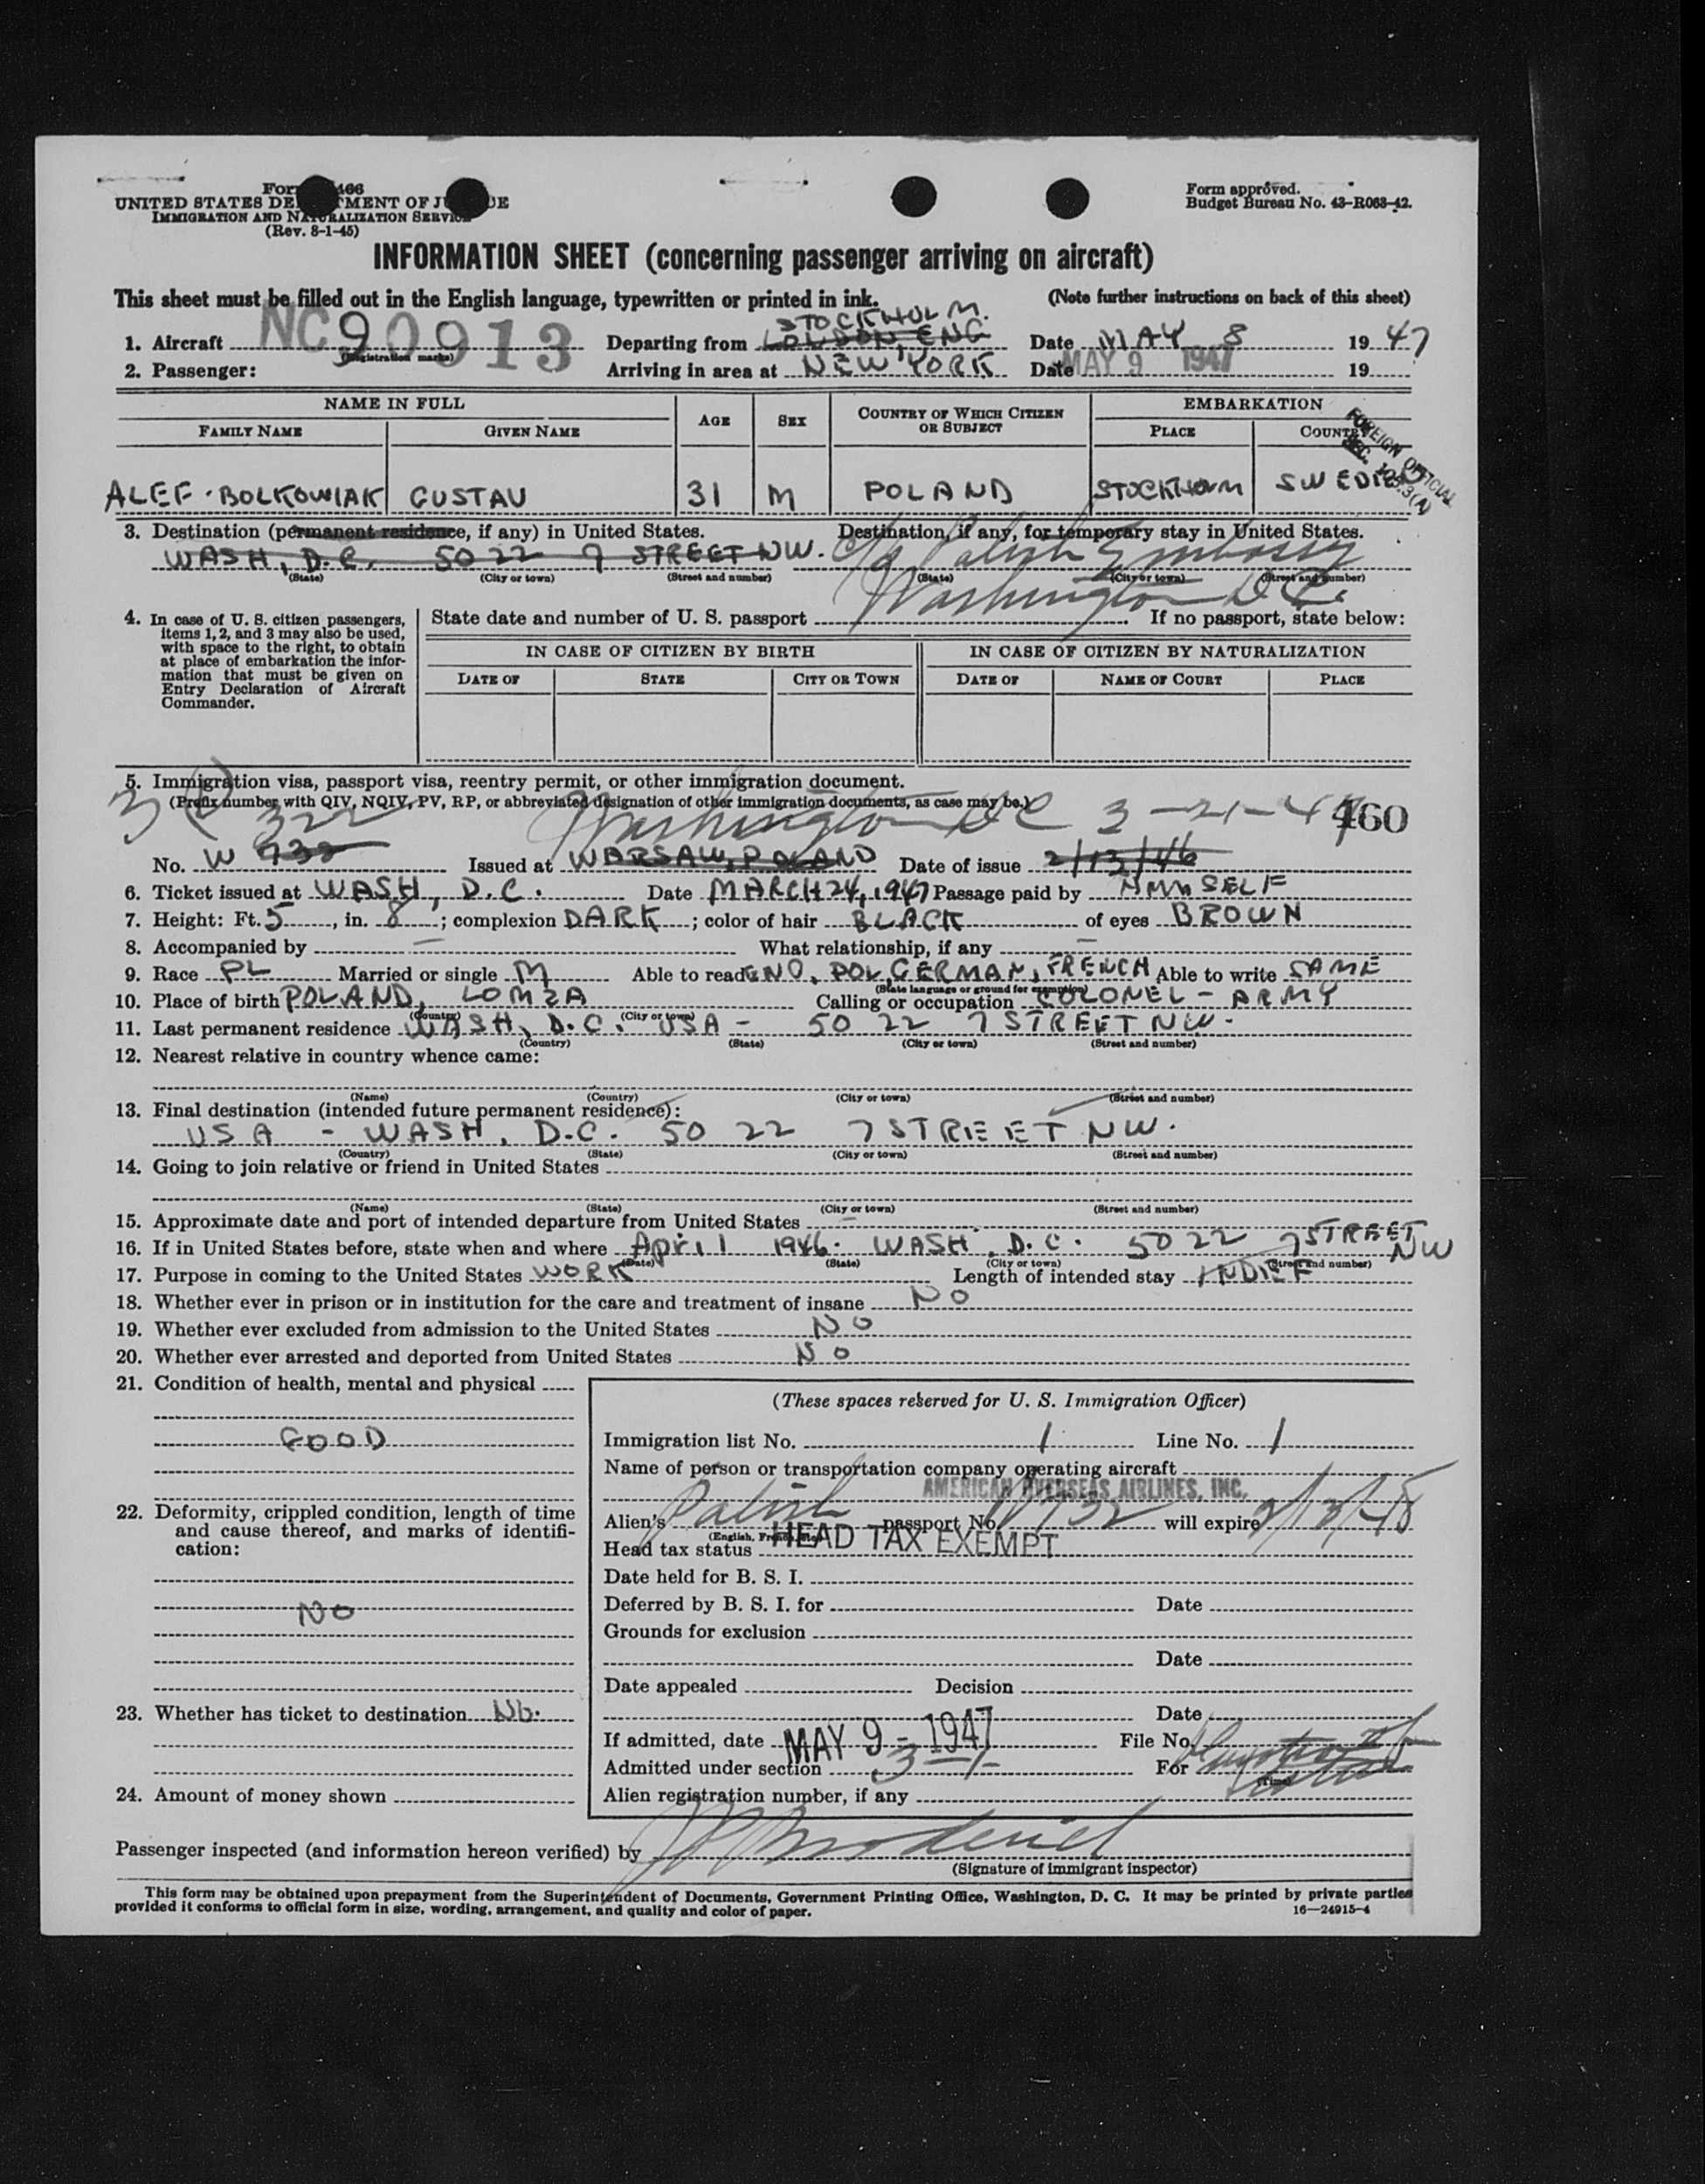 Form 466
UNITED STATES DEPARTMENT OF JUSTICE
IMMIGRATION AND NATURALIZATION SERVICE
(Rev. 8-1-45)
Form approved.
Budget Bureau No. 43-R063-42.
INFORMATION SHEET (concerning passenger arriving on aircraft)
This sheet must be filled out in the English language, typewritten or printed in ink. (Note further instructions on back of this sheet)
STOCKHOLM.
1. Aircraft NC90913 Departing from LONDON, ENG Date MAY 8 1947
(Registration marks)
2. Passenger: Arriving in area at NEW YORK Date MAY 9 1947 19
NAME IN FULL AGE SEX COUNTRY OF WHICH CITIZEN OR SUBJECT EMBARKATION
FAMILY NAME GIVEN NAME PLACE COUNTRY
FOREIGN OFFICIAL
SEC. 10 3(A)
ALEF-BOLKOWIAK GUSTAV 31 M POLAND STOCKHOLM SWEDEN
3. Destination (permanent residence, if any) in United States. Destination, if any, for temporary stay in United States.
WASH, D.C. 5022 7 STREET NW. c/o Polish Embassy
(State) (City or town) (Street and number) (State) (City or town) (Street and number)
Washington D.C.
4. In case of U. S. citizen passengers, items 1, 2, and 3 may also be used, with space to the right, to obtain at place of embarkation the information that must be given on Entry Declaration of Aircraft Commander.
State date and number of U. S. passport If no passport, state below:
IN CASE OF CITIZEN BY BIRTH IN CASE OF CITIZEN BY NATURALIZATION
DATE OF STATE CITY OR TOWN DATE OF NAME OF COURT PLACE
5. Immigration visa, passport visa, reentry permit, or other immigration document.
(Prefix number with QIV, NQIV, PV, RP, or abbreviated designation of other immigration documents, as case may be.)
322 Washington DC 3-21-47 460
No. W 932 Issued at WARSAW, POLAND Date of issue 2/13/46
6. Ticket issued at WASH, D.C. Date MARCH 24, 1947 Passage paid by HIMSELF
7. Height: Ft. 5, in. 8; complexion DARK; color of hair BLACK of eyes BROWN
8. Accompanied by — What relationship, if any —
9. Race PL Married or single M Able to read ENG, POL, GERMAN, FRENCH Able to write SAME
(State language or ground for exemption)
10. Place of birth POLAND, LOMZA Calling or occupation COLONEL - ARMY
(Country) (City or town)
11. Last permanent residence WASH, D.C. USA - 5022 7 STREET NW.
(Country) (State) (City or town) (Street and number)
12. Nearest relative in country whence came:
(Name) (Country) (City or town) (Street and number)
13. Final destination (intended future permanent residence):
USA - WASH, D.C. 5022 7 STREET NW.
(Country) (State) (City or town) (Street and number)
14. Going to join relative or friend in United States
(Name) (State) (City or town) (Street and number)
15. Approximate date and port of intended departure from United States —
16. If in United States before, state when and where April 1946. WASH, D.C. 5022 7 STREET NW
(Date) (State) (City or town) (Street and number)
17. Purpose in coming to the United States WORK Length of intended stay INDIEF
18. Whether ever in prison or in institution for the care and treatment of insane NO
19. Whether ever excluded from admission to the United States NO
20. Whether ever arrested and deported from United States NO
21. Condition of health, mental and physical
GOOD
22. Deformity, crippled condition, length of time and cause thereof, and marks of identification:
NO
23. Whether has ticket to destination No.
24. Amount of money shown
(These spaces reserved for U. S. Immigration Officer)
Immigration list No. 1 Line No. 1
Name of person or transportation company operating aircraft
AMERICAN OVERSEAS AIRLINES, INC.
Alien's Polish passport No. W932 will expire 2/13/48
(English, French, etc.)
Head tax status HEAD TAX EXEMPT
Date held for B. S. I.
Deferred by B. S. I. for Date
Grounds for exclusion
Date
Date appealed Decision
Date
If admitted, date MAY 9 - 1947 File No.
Admitted under section 3-1- For
(Time)
Alien registration number, if any
Passenger inspected (and information hereon verified) by
(Signature of immigrant inspector)
This form may be obtained upon prepayment from the Superintendent of Documents, Government Printing Office, Washington, D. C. It may be printed by private parties
provided it conforms to official form in size, wording, arrangement, and quality and color of paper. 16—24915-4